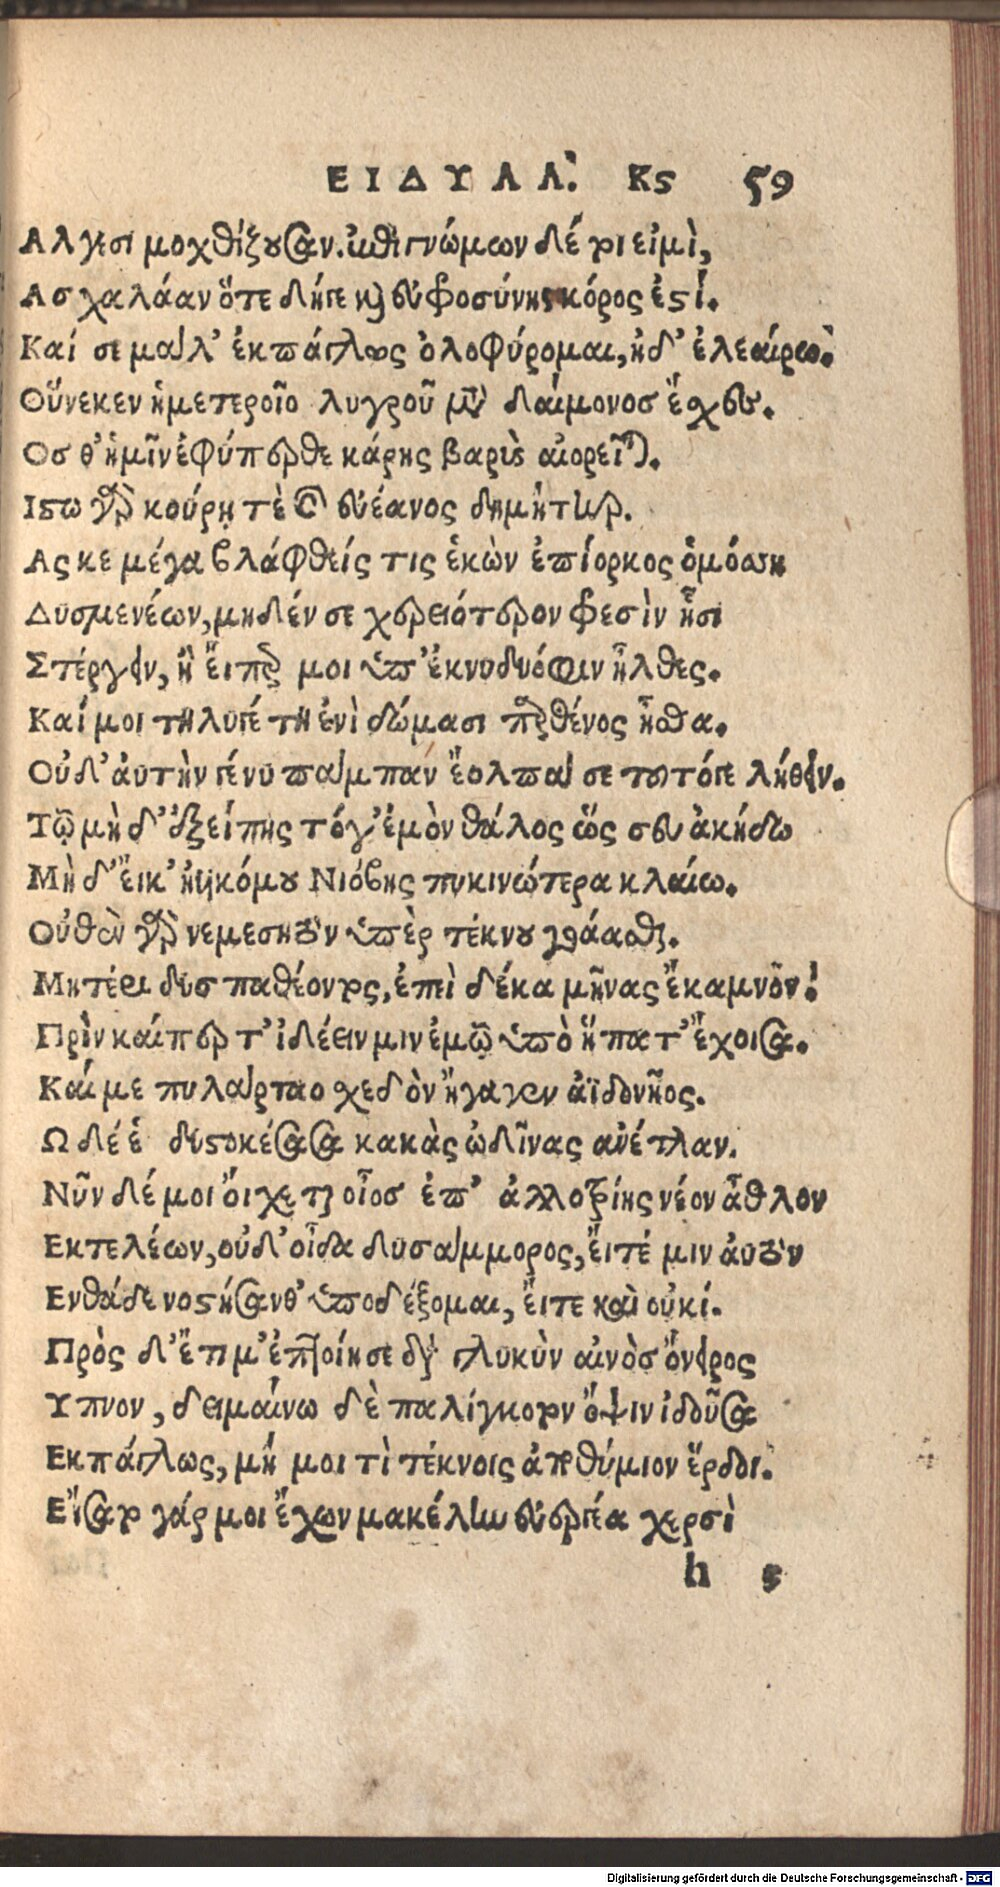 ΕΙΔΥΛΛ. Κϛ 59
Αλγεσι μοχθίζουσαν. ἀμαθὴ γνώμων δέ τοι εἰμὶ,
Ασχαλάαν ὅτε δή γε καὶ εὐφροσύνης κόρος ἐστί.
Καί σε μάλ' ἐκπάγλως ὀλοφύρομαι, ἠδ' ἐλεαίρω.
Οὕνεκεν ἡμετεροῖο λυγροῦ μετὰ δαίμονοσ ἔχευ.
Οσ θ' ἡμῖν ἐφύπερθε κάρης βαρὺς αἰορεῖται.
Ιστω γὰρ κούρη τὲ καὶ εὐέανος δημήτηρ.
Ας κε μέγα βλαφθείς τις ἑκὼν ἐπίορκος ὁμόσση
Δυσμενέων, μηδέν σε χερειότερον φρεσὶν ᾗσι
Στέργειν, ἢ εἴπερ μοι ὑπ' ἐκ νυδυόφιν ἦλθες.
Καί μοι τηλυγέτη ἐνὶ δώμασι παρθένος ἦσθα.
Οὐδ' ἀυτήν γέ νυ πάμπαν ἔολπα σε τοῦτό γε λήθειν.
Τῷ μὴ δ' ἐξείπης τόγ' ἐμὸν θάλος ὥς σευ ἀκήδω
Μὴ δ' εἴ κ' ἠυκόμου Νιόβης πυκινώτερα κλαίω.
Οὐθὲν γὰρ νεμεσητὸν ὑπὲρ τέκνου γοάασθαι.
Μητέρι δυσπαθέοντος, ἐπεὶ δέκα μῆνας ἔκαμνον.
Πρὶν καίπερ τ' ἰδέειν μιν ἐμῷ ὑπὸ ἥπατ' ἔχοισα.
Καί με πυλάρταο σχεδὸν ἤγαγεν ἀϊδονῆος.
Ω δέ ἑ δυστοκέσασα κακὰς ὠδῖνας ἀνέτλαν.
Νῦν δέ μοι ὄιχεται οἶοσ ἐπ' ἀλλοτρίης νέον ἆθλον
Εκτελέων, οὐδ' οἶδα δυσάμμορος, ἔιτέ μιν ἀυτὸν
Ενθάδε νοστήσανθ' ὑποδέξομαι, ἔιτε καὶ οὐκί.
Πρὸς δ' ἔτι μ' ἐπτοίησε διὰ γλυκὺν αἰνὸσ ὄνειρος
Υπνον, δειμαίνω δὲ παλίγκοτον ὄψιν ἰδοῦσα
Εκπάγλως, μή μοι τὶ τέκνοις ἀποθύμιον ἔρδοι.
Εἴσατο γάρ μοι ἔχων μακέλην εὐεργέα χερσὶ
h